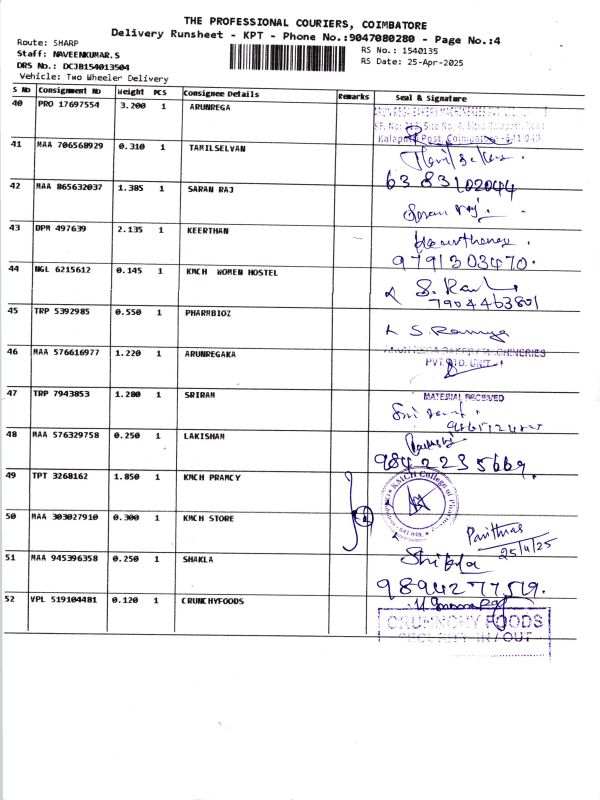 THE PROFESSIONAL COURIERS, COIMBATORE
Delivery Runsheet - KPT - Phone No.:9047080280 - Page No.:4
Route: SHARP
RS No.: 1540135
Staff: NAVEENKUMAR.S
RS Date: 25-Apr-2025
DRS No.: DCJB154013504
Vehicle: Two Wheeler Delivery
S No Consignment No Weight PCS Consignee Details Remarks Seal & Signature
40 PRO 17697554 3.200 1 ARUNREGA
41 MAA 706568929 0.310 1 TAMILSELVAN
6383102044
42 MAA 865632037 1.385 1 SARAN RAJ
Saran raj.
43 DPM 497639 2.135 1 KEERTHAN
9791303470.
44 NGL 6215612 0.145 1 KMCH WOMEN HOSTEL
7904463801
45 TRP 5392985 0.550 1 PHARMBIOZ
S. Ramya
46 MAA 576616977 1.220 1 ARUNREGAKA
ARUN REGA BAKERY MACHINERIES
PVT. LTD.
47 TRP 7943853 1.280 1 SRIRAM
MATERIAL RECEVED
48 MAA 576329758 0.250 1 LAKISHAM
9842235669.
49 TPT 3268162 1.850 1 KMCH PRAMCY
KMCH College of
50 MAA 303027910 0.300 1 KMCH STORE
25/4/25
51 MAA 945396358 0.250 1 SHAKLA
9894277519.
52 VPL 519104481 0.120 1 CRUNCHYFOODS
CRUNCHY FOODS
SECURITY IN/OUT